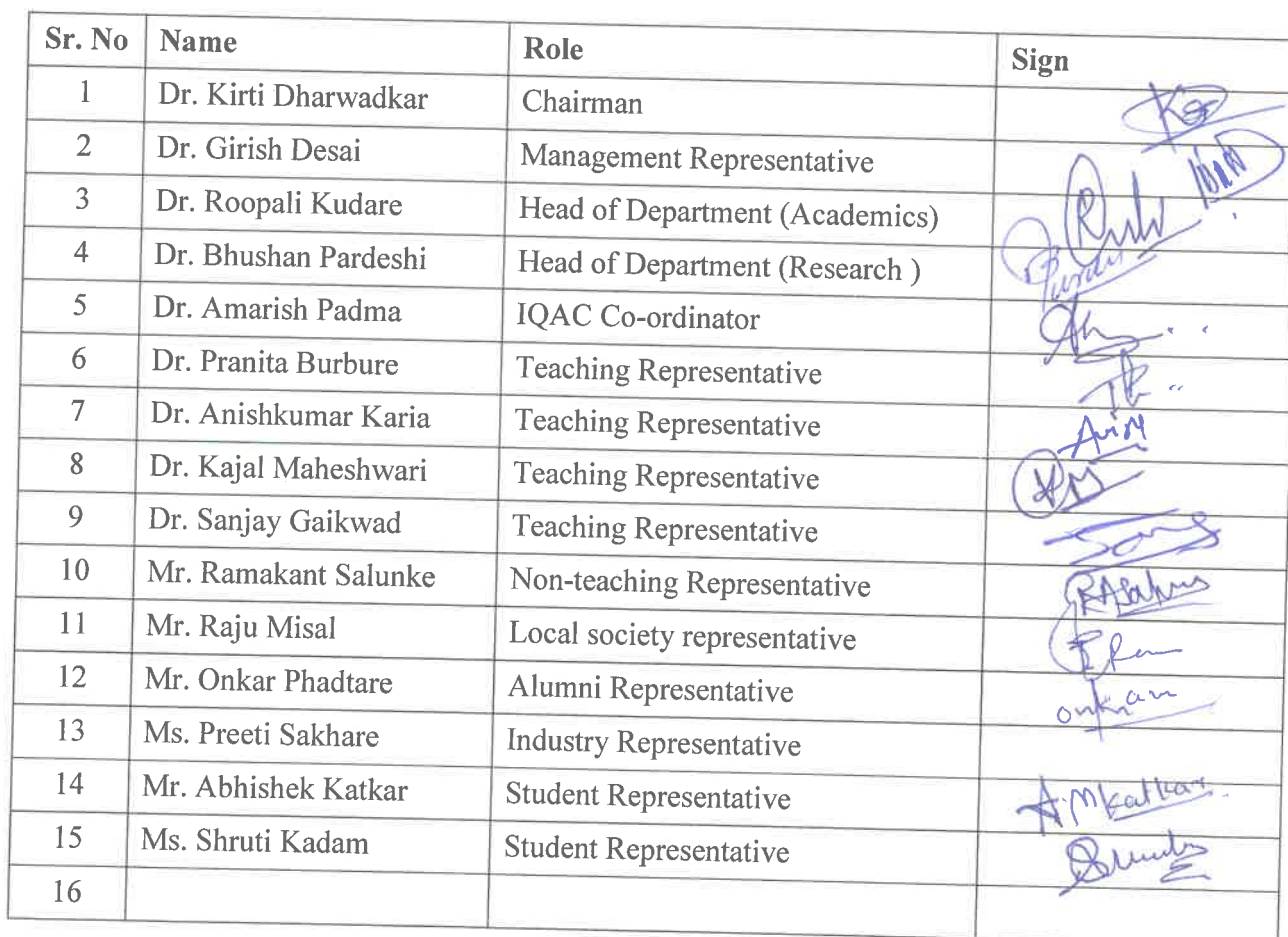 Sr. No Name Role Sign
1 Dr. Kirti Dharwadkar Chairman
2 Dr. Girish Desai Management Representative
3 Dr. Roopali Kudare Head of Department (Academics)
4 Dr. Bhushan Pardeshi Head of Department (Research )
5 Dr. Amarish Padma IQAC Co-ordinator
6 Dr. Pranita Burbure Teaching Representative
7 Dr. Anishkumar Karia Teaching Representative
8 Dr. Kajal Maheshwari Teaching Representative
9 Dr. Sanjay Gaikwad Teaching Representative
10 Mr. Ramakant Salunke Non-teaching Representative
11 Mr. Raju Misal Local society representative
12 Mr. Onkar Phadtare Alumni Representative
13 Ms. Preeti Sakhare Industry Representative
14 Mr. Abhishek Katkar Student Representative A.M katkar
15 Ms. Shruti Kadam Student Representative
16